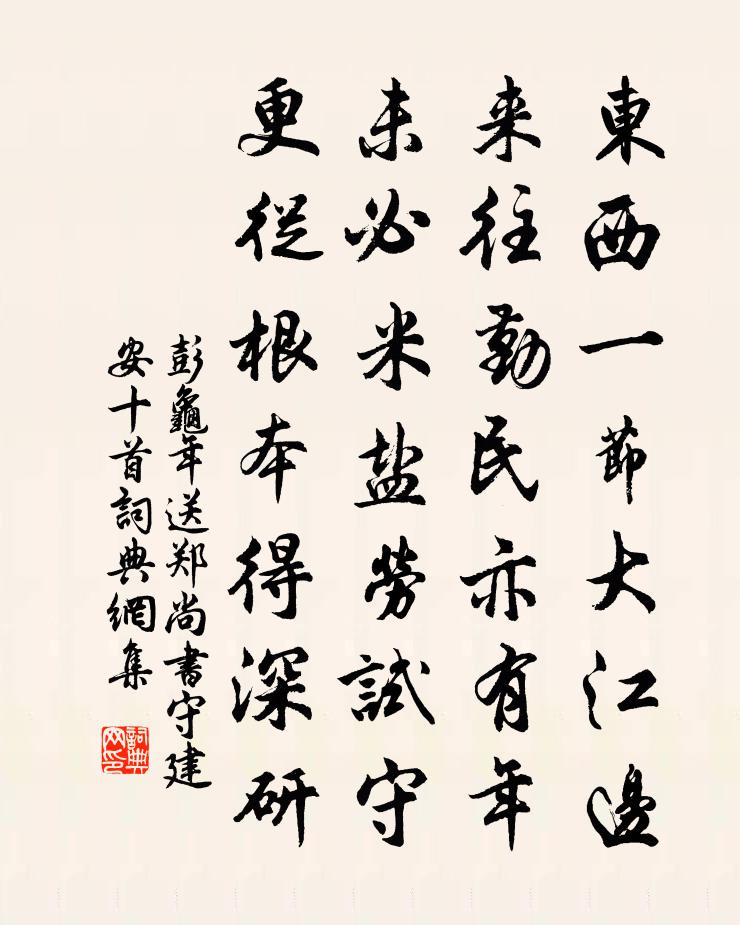 東西一節大江邊
来往勤民亦有年
未必米盐勞試守
更從根本得深研
彭龜年送郑尚書守建
安十首詞典網集
詞典
网印